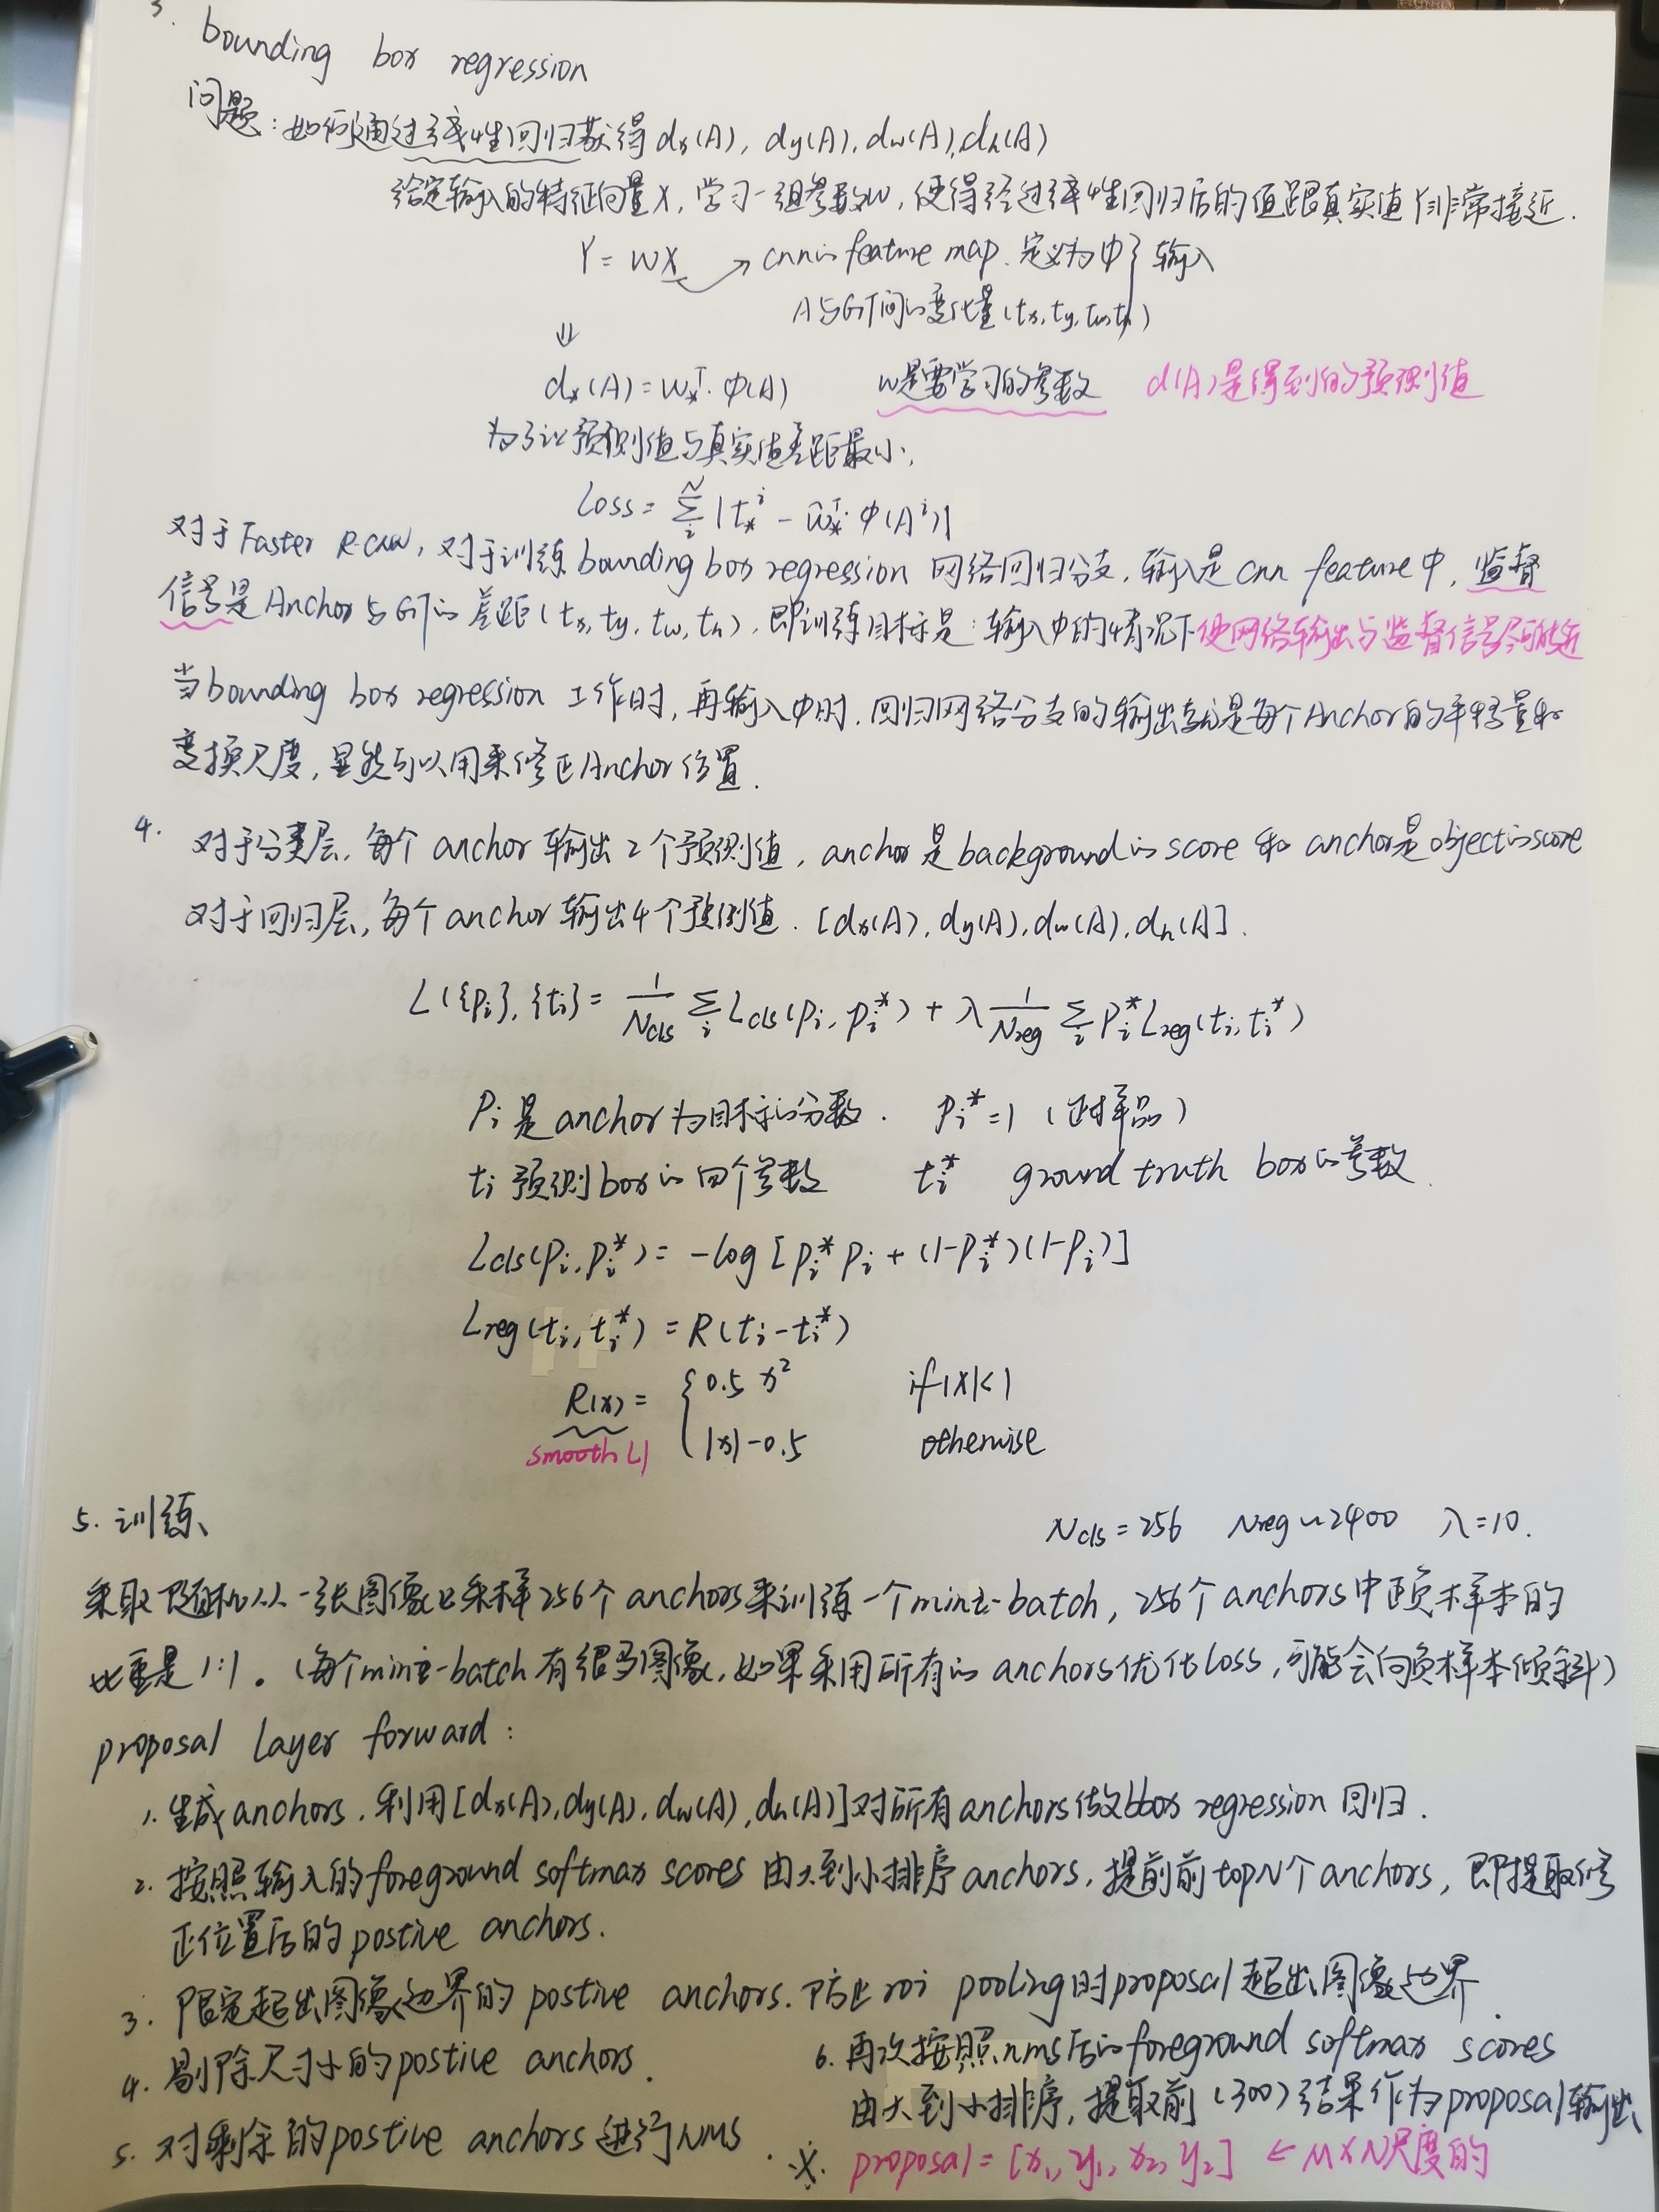 3.
bounding box regression
问题：如何通过线性回归获得 dx(A), dy(A), dw(A), dh(A)
给定输入的特征向量X, 学习一组参数W, 使得经过线性回归后的值跟真实值Y非常接近.
Y = WX → cnn的feature map. 定义为Φ } 输入
A与GT间的变化量(tx, ty, tw, th)
⇓
d*(A) = W*ᵀ·Φ(A) W是要学习的参数 d(A)是得到的预测值
为了让预测值与真实值差距最小,
Loss = Σᵢᴺ |t*ⁱ - Ŵ*ᵀ·Φ(Aⁱ)|
对于Faster R-CNN, 对于训练bounding box regression 网络回归分支, 输入是cnn feature Φ, 监督
信号是Anchor与GT的差距(tx, ty, tw, th), 即训练目标是: 输入Φ的情况下使网络输出与监督信号尽可能近
当bounding box regression 工作时, 再输入Φ时, 回归网络分支的输出就是每个Anchor的平移量和
变换尺度, 显然可以用来修正Anchor位置.
4. 对于分类层, 每个anchor输出2个预测值, anchor是background的score 和 anchor是object的score
对于回归层, 每个anchor输出4个预测值. [dx(A), dy(A), dw(A), dh(A)].
L({pi}, {ti} = 1/Ncls Σᵢ Lcls(pi, pi*) + λ 1/Nreg Σᵢ pi* Lreg(ti, ti*)
Pi 是anchor为目标的分数. Pi* = 1 (正样品)
ti 预测box的四个参数 ti* ground truth box的参数.
Lcls(pi, pi*) = -log [pi* pi + (1-pi*)(1-pi)]
Lreg(ti, ti*) = R(ti - ti*)
R(x) = { 0.5 x² if |x|<1
smooth L1 |x| - 0.5 otherwise
5. 训练
Ncls = 256 Nreg ~ 2400 λ = 10.
采取随机从一张图像上采样256个anchors来训练一个mini-batch, 256个anchors中正负样本的
比重是1:1。(每个mini-batch有很多图像, 如果采用所有的anchors优化loss, 可能会向负样本倾斜)
proposal layer forward:
1. 生成anchors, 利用[dx(A), dy(A), dw(A), dh(A)]对所有anchors做bbox regression 回归.
2. 按照输入的foreground softmax scores 由大到小排序anchors, 提前前topN个anchors, 即提取修
正位置后的postive anchors.
3. 限定超出图像边界的postive anchors. 防止roi pooling时proposal超出图像边界.
4. 剔除尺寸小的postive anchors.
5. 对剩余的postive anchors进行NMS.
6. 再次按照nms后的foreground softmax scores
由大到小排序, 提取前(300)结果作为proposal输出
※. proposal = [x1, y1, x2, y2] ← M×N尺度的